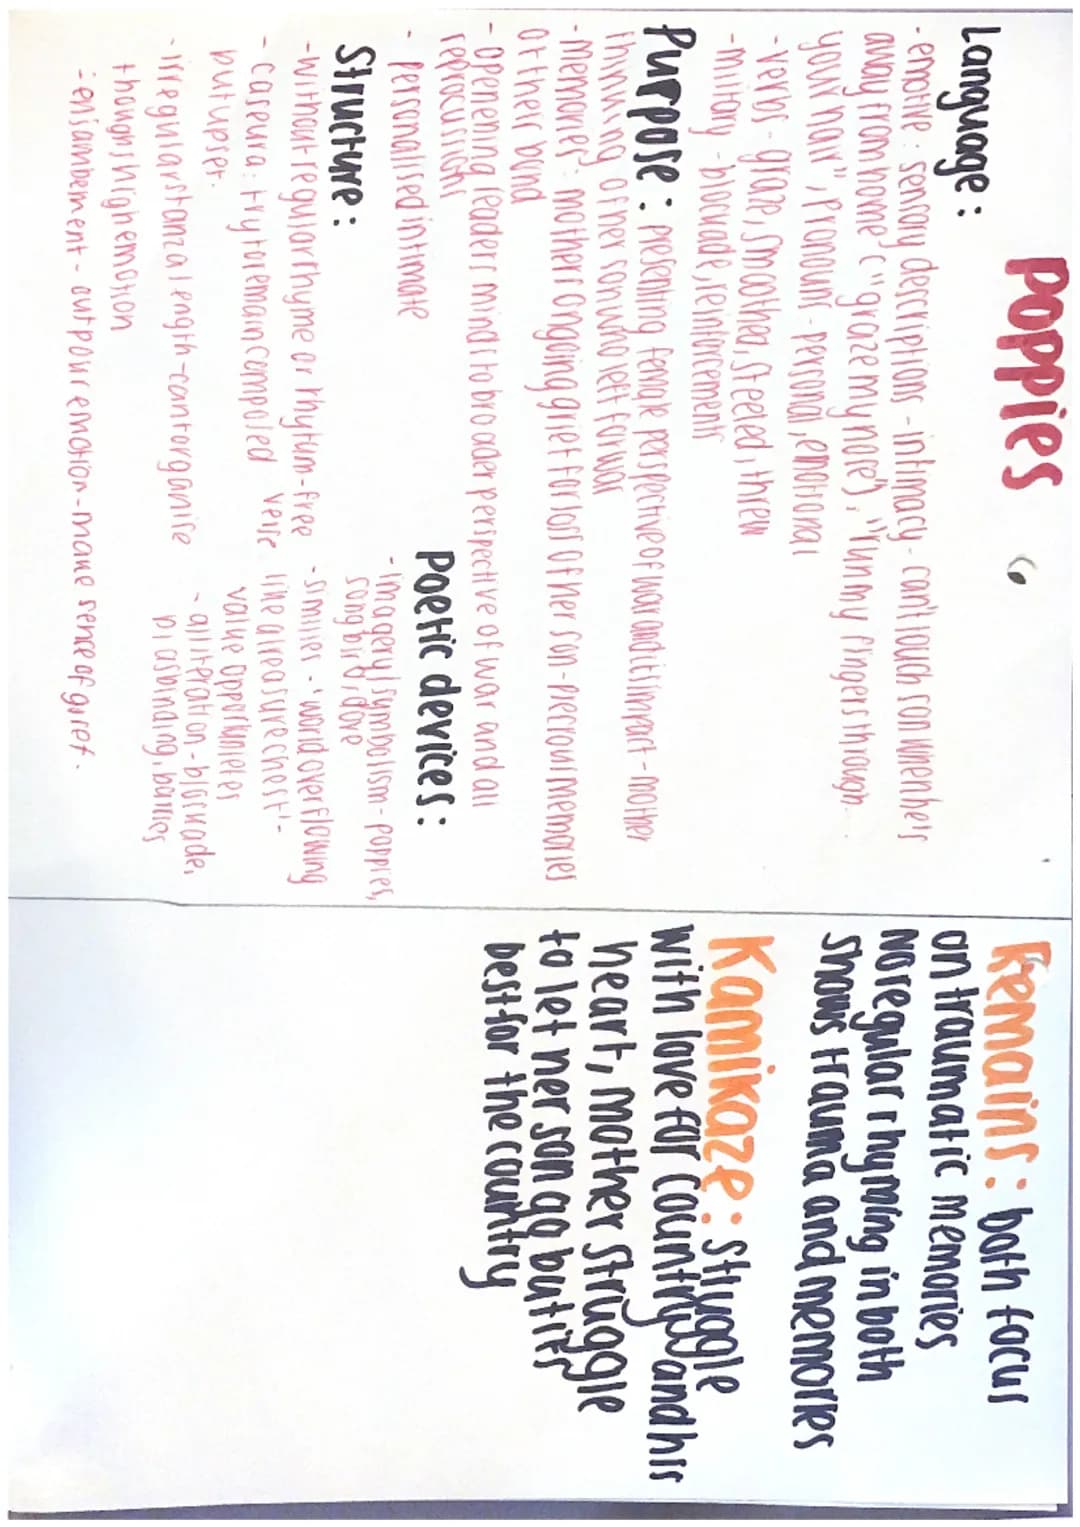 poppies
Language:
- emotive: sensory descriptions - intimacy - can't touch son when he's
away from home c "graze my nose", "run my fingers through
your hair", Pronouns - personal, emotional
- verbs - graze, smoothed, steeled, threw
- military - blockade, reinforcements
Purpose: presenting female perspective of war and its impact - mother
thinking of her son who left for war
- memories: mother ongoing grief for loss of her son - precious memories
of their bond
- opening readers minds to broader perspective of war and all
reprocussion
- personalised intimate
Structure:
- without regular rhyme or rhythum - free
verse
- caesura: try to remain composed
but upset.
- irregular stanza length - cant organise
thoughs high emotion
- enjambement - outpour emotion - make sense of grief.
Poetic devices:
- imagery/symbolism - poppies,
songbird, dove
- similies - 'world overflowing
like a treasure chest' -
value opportunietes
- alliteration - blockade,
bias binding, blazer
Remains: both focus
on traumatic memories
No regular rhyming in both
shows trauma and memories
Kamikaze: Struggle
with love for country and his
heart, mother struggle
to let her son go but its
best for the country